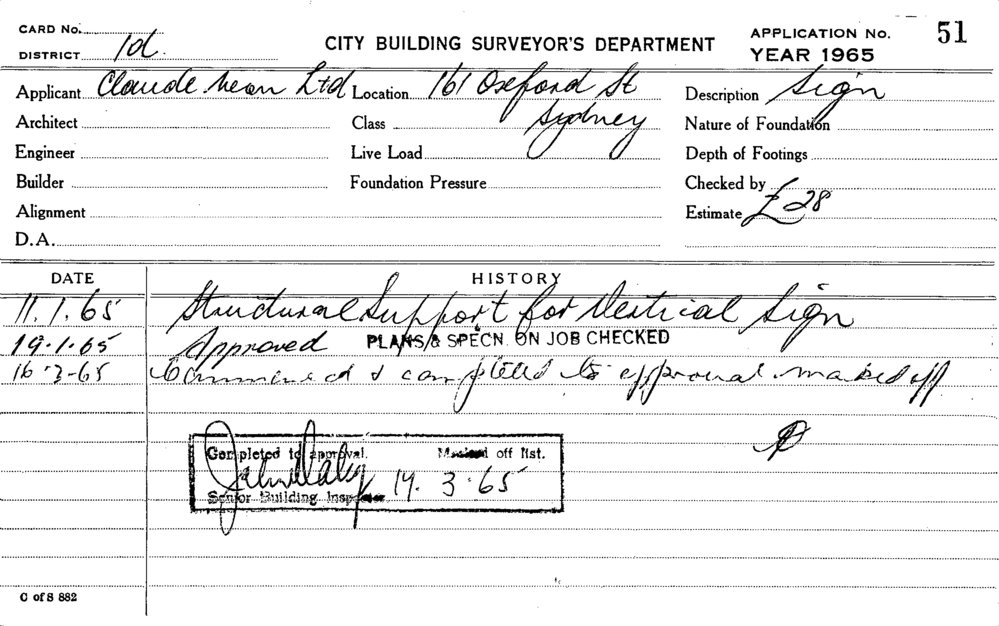 CARD No.
DISTRICT 1d.
CITY BUILDING SURVEYOR'S DEPARTMENT
APPLICATION No. 51
YEAR 1965
Applicant Claude Neon Ltd Location 161 Oxford St Description Sign
Architect Class Sydney Nature of Foundation
Engineer Live Load Depth of Footings
Builder Foundation Pressure Checked by
Alignment Estimate £28
D.A.
DATE HISTORY
11.1.65 Structural Support for Vertical Sign
19.1.65 Approved PLANS & SPECN. ON JOB CHECKED
16-3-65 Commenced & completed to approval marked off
Completed to approval. Marked off list.
14.3.65
Senior Building Inspector
C of S 882